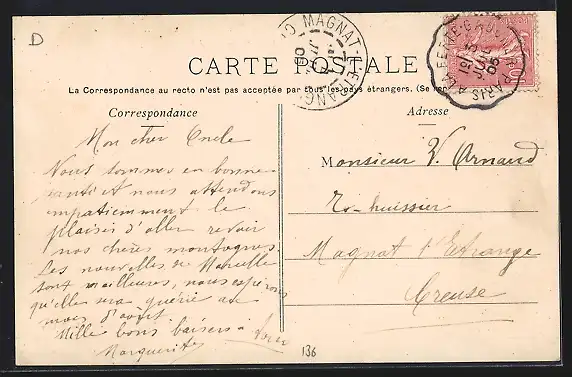 D
CARTE POSTALE
La Correspondance au recto n'est pas acceptée par tous les pays étrangers. (Se ren
Correspondance
Adresse
Mon cher Oncle
Nous sommes en bonne
santé et nous attendons
impatiemment le
plaisir d'aller revoir
nos chères montagnes.
Les nouvelles de Marcelle
sont meilleures, nous espérons
qu'elle sera guérie au
mois d'août.
Mille bons baisers à tous
Marguerite
Monsieur V. Arnaud
Ex-huissier
Magnat l'Etrange
Creuse
MAGNAT-L'ETRANG
PARIS A LA FERTE-GAUCHER
136